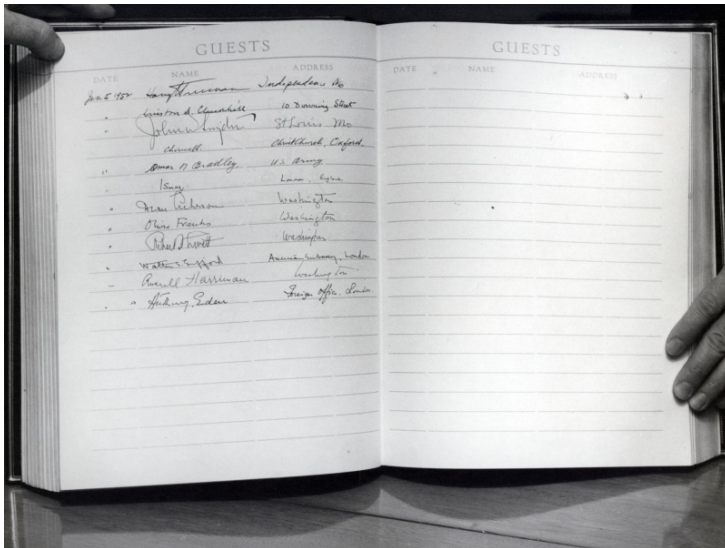 GUESTS
DATE NAME ADDRESS
Jan 5 1952 Harry Truman Independence Mo
" Winston S. Churchill 10 Downing Street
" John W Snyder St Louis Mo
Cherwell Christ Church, Oxford.
" Omar N Bradley US Army
" Ismay
" Dean Acheson Washington
" Oliver Franks Washington
" Robert A Lovett Washington
" Walter S. Gifford American Embassy, London
" Averell Harriman Washington
" " Anthony Eden Foreign Office, London
GUESTS
DATE NAME ADDRESS